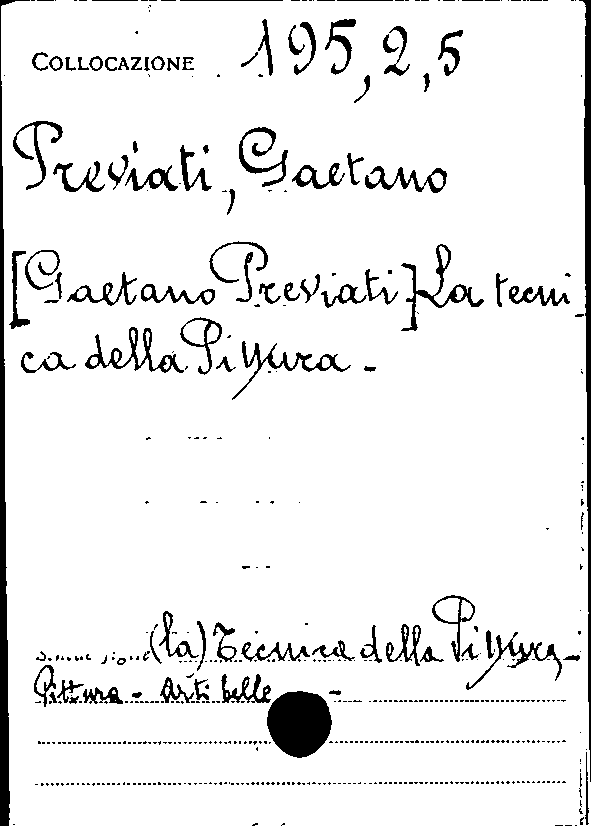 COLLOCAZIONE 195,2,5
Previati, Gaetano
[Gaetano Previati] La tecni-
ca della Pittura -
(la) Tecnica della Pittura -
Pittura - Arti belle -